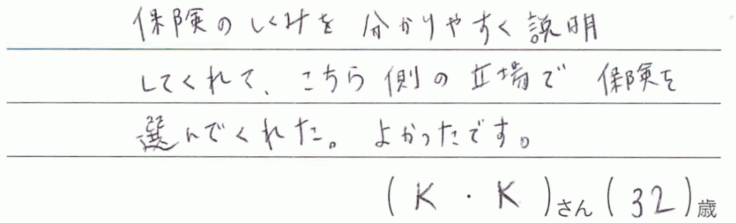 保険のしくみを分かりやすく説明
してくれて、こちら側の立場で保険を
選んでくれた。よかったです。
(K・K)さん(32)歳